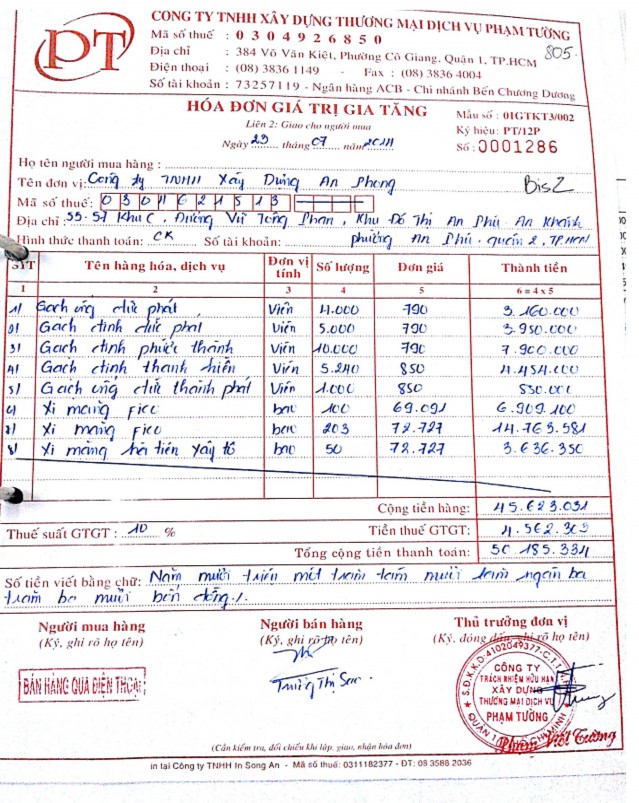 PT
CÔNG TY TNHH XÂY DỰNG THƯƠNG MẠI DỊCH VỤ PHẠM TƯỜNG
Mã số thuế : 0 3 0 4 9 2 6 8 5 0
Địa chỉ : 384 Võ Văn Kiệt, Phường Cô Giang, Quận 1, TP.HCM 805.
Điện thoại : (08) 3836 1149 - Fax : (08) 3836 4004
Số tài khoản : 73257119 - Ngân hàng ACB - Chi nhánh Bến Chương Dương
HÓA ĐƠN GIÁ TRỊ GIA TĂNG
Mẫu số : 01GTKT3/002
Liên 2: Giao cho người mua
Ký hiệu: PT/12P
Ngày 23 tháng 07 năm 2014
Số : 0001286
Họ tên người mua hàng :
Tên đơn vị: Công ty TNHH Xây Dựng An Phong Bis2
Mã số thuế: 0 3 0 1 6 2 1 5 1 3
Địa chỉ : 55-57 Khu C, Đường Vũ Tông Phan, Khu Đô Thị An Phú An Khánh
Hình thức thanh toán: CK Số tài khoản: phường An Phú. quận 2, TP.HCM
STT Tên hàng hóa, dịch vụ Đơn vị tính Số lượng Đơn giá Thành tiền
1 2 3 4 5 6 = 4 x 5
1/ Gạch ống đức phát Viên 4.000 790 3.160.000
2/ Gạch đinh đức phát Viên 5.000 790 3.950.000
3/ Gạch đinh phước thành Viên 10.000 790 7.900.000
4/ Gạch đinh thanh hiền Viên 5.240 850 4.454.000
5/ Gạch ống đức thành phát Viên 1.000 850 850.000
6/ Xi măng Fico bao 100 69.091 6.909.100
7/ Xi măng Fico bao 203 72.727 14.763.581
8/ Xi măng hà tiên xây tô bao 50 72.727 3.636.350
Cộng tiền hàng: 45.623.031
Thuế suất GTGT : 10 % Tiền thuế GTGT: 4.562.303
Tổng cộng tiền thanh toán: 50.185.334
Số tiền viết bằng chữ: Năm mươi triệu một trăm tám mươi lăm ngàn ba
trăm ba mươi bốn đồng./.
Người mua hàng Người bán hàng Thủ trưởng đơn vị
(Ký, ghi rõ họ tên) (Ký, ghi rõ họ tên) (Ký, đóng dấu, ghi rõ họ tên)
BÁN HÀNG QUA ĐIỆN THOẠI
S.Đ.K.K.D:4102049377-C.T.T
CÔNG TY
TRÁCH NHIỆM HỮU HẠN
XÂY DỰNG
THƯƠNG MẠI DỊCH VỤ
PHẠM TƯỜNG
Phạm Viết Tường
(Cần kiểm tra, đối chiếu khi lập, giao, nhận hóa đơn)
in tại Công ty TNHH In Song An - Mã số thuế: 0311182377 - ĐT: 08 3588 2036